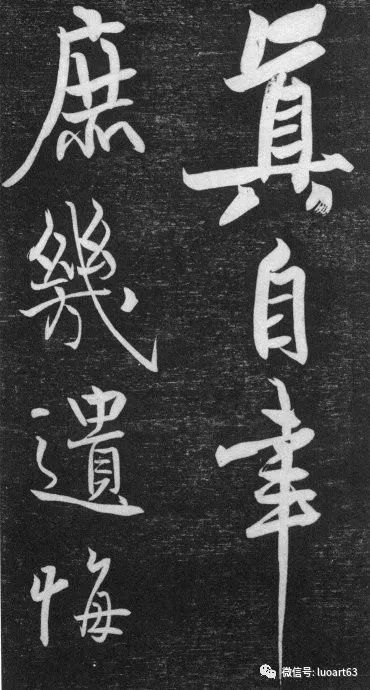 眞自幸
庶幾遺悔
微信号: luoart63